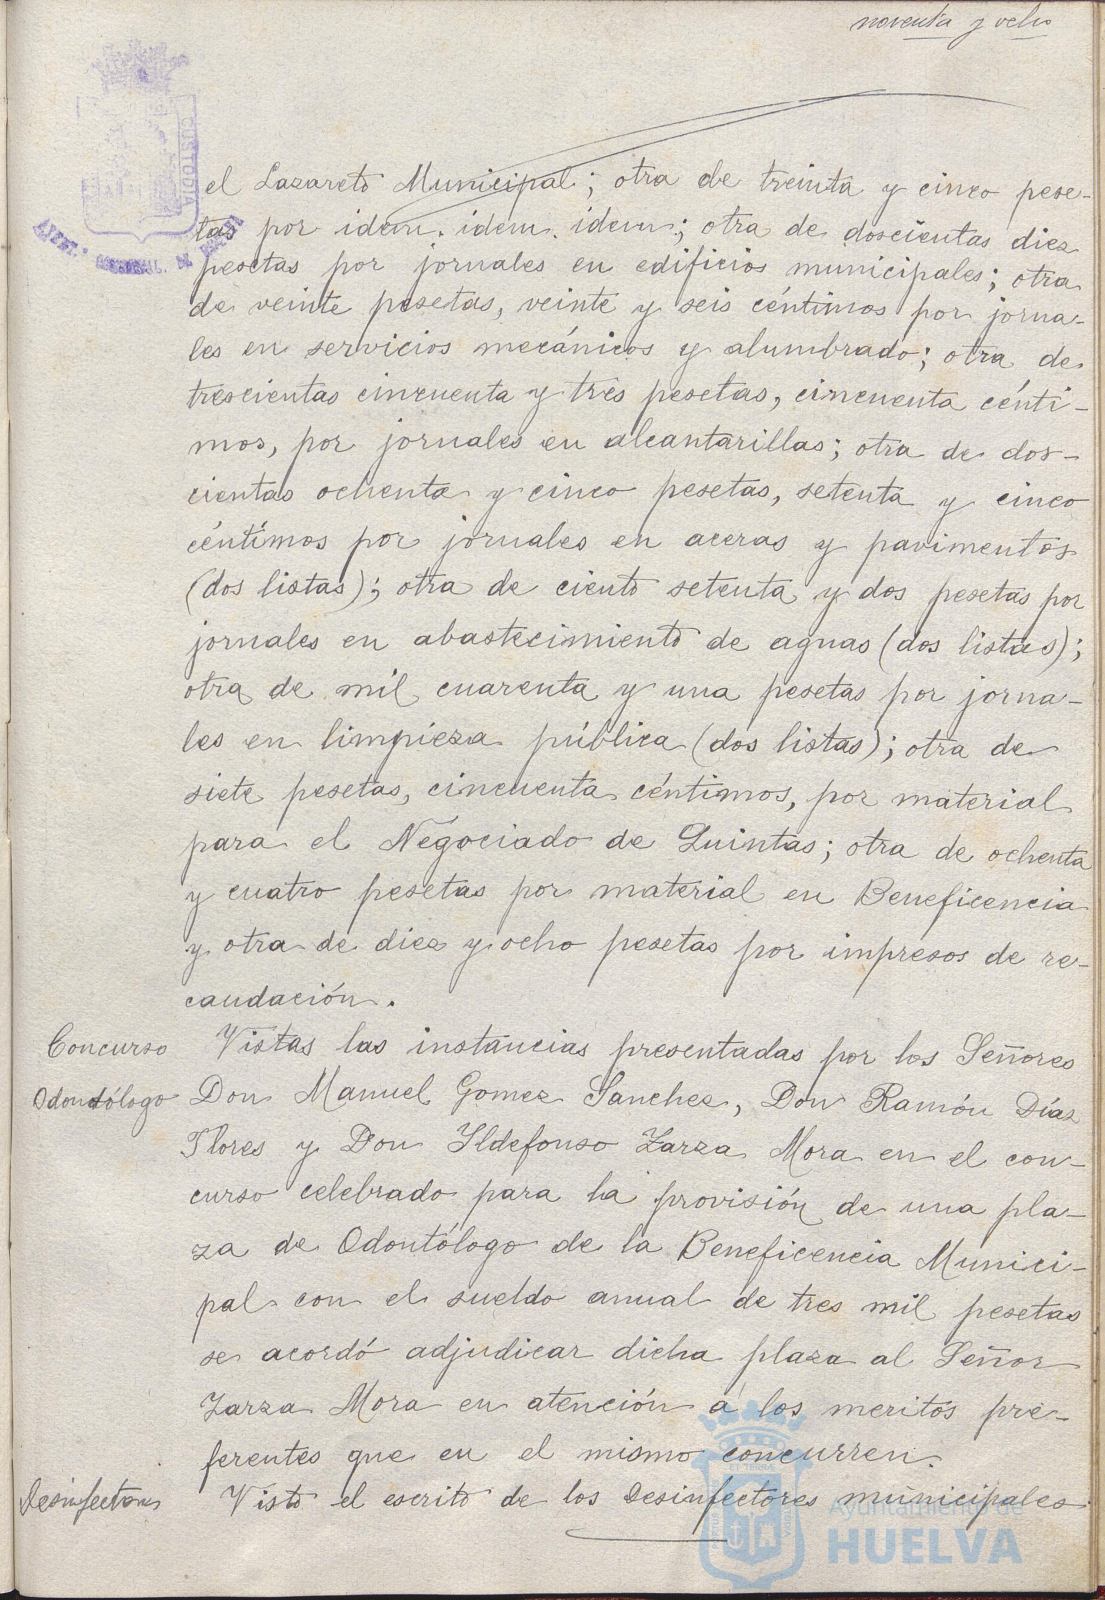 noventa y ocho
CUSTODIA
el Lazareto Municipal; otra de treinta y cinco pese-
tas por idem. idem. idem; otra de doscientas diez
pesetas por jornales en edificios municipales; otra
de veinte pesetas, veinte y seis céntimos por jorna-
les en servicios mecánicos y alumbrado; otra de
trescientas cincuenta y tres pesetas, cincuenta cénti-
mos, por jornales en alcantarillas; otra de dos-
cientas ochenta y cinco pesetas, setenta y cinco
céntimos por jornales en aceras y pavimentos
(dos listas); otra de ciento setenta y dos pesetas por
jornales en abastecimiento de aguas (dos listas);
otra de mil cuarenta y una pesetas por jorna-
les en limpieza pública (dos listas); otra de
siete pesetas, cincuenta céntimos, por material
para el Negociado de Quintas; otra de ochenta
y cuatro pesetas por material en Beneficencia
y otra de diez y ocho pesetas por impresos de re-
caudación.
Concurso Vistas las instancias presentadas por los Señores
Odontólogo Don Manuel Gomez Sanchez, Don Ramón Díaz
Flores y Don Ildefonso Zarza Mora en el con-
curso celebrado para la provisión de una pla-
za de Odontólogo de la Beneficencia Munici-
pal con el sueldo anual de tres mil pesetas
se acordó adjudicar dicha plaza al Señor
Zarza Mora en atención a los meritos pre-
ferentes que en el mismo concurren.
Desinfectores Visto el escrito de los Desinfectores municipales
Ayuntamiento de
HUELVA